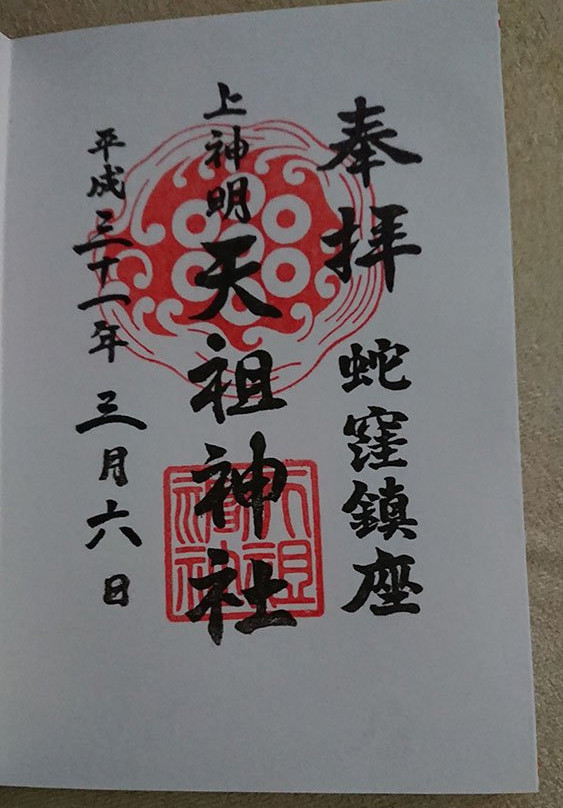 奉拝 蛇窪鎮座
上神明天祖神社
平成三十一年三月六日
天祖神社